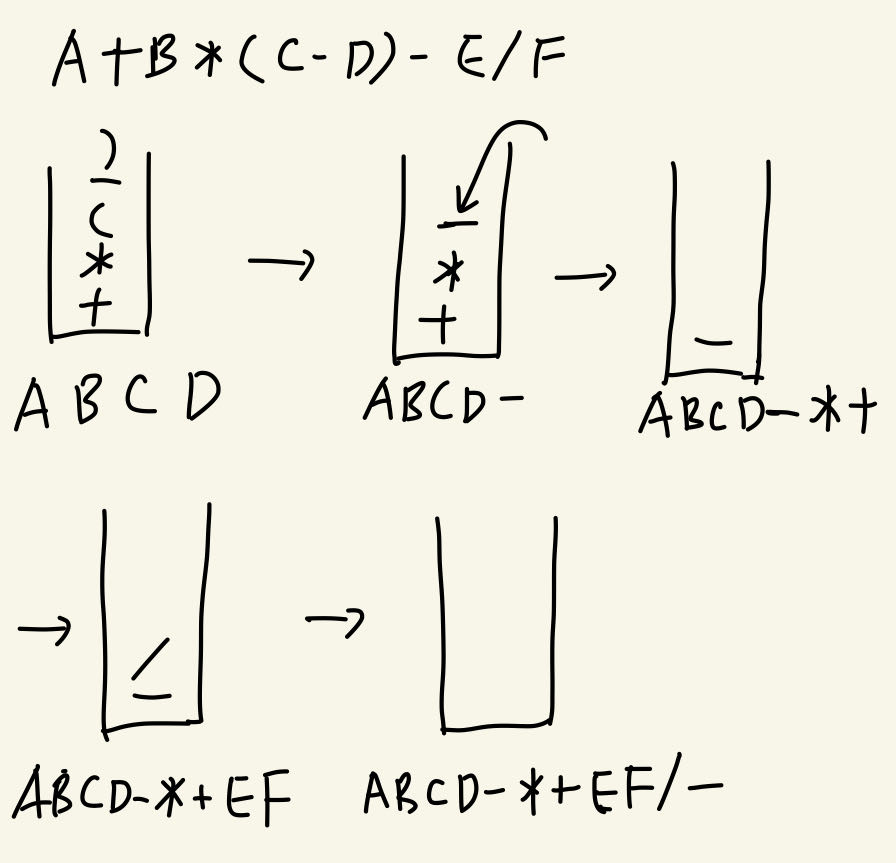 A+B*(C-D)-E/F
)
-
(
*
+
A B C D
→
-
*
+
ABCD-
→
-
ABCD-*+
→
/
-
ABCD-*+EF
→
ABCD-*+EF/-